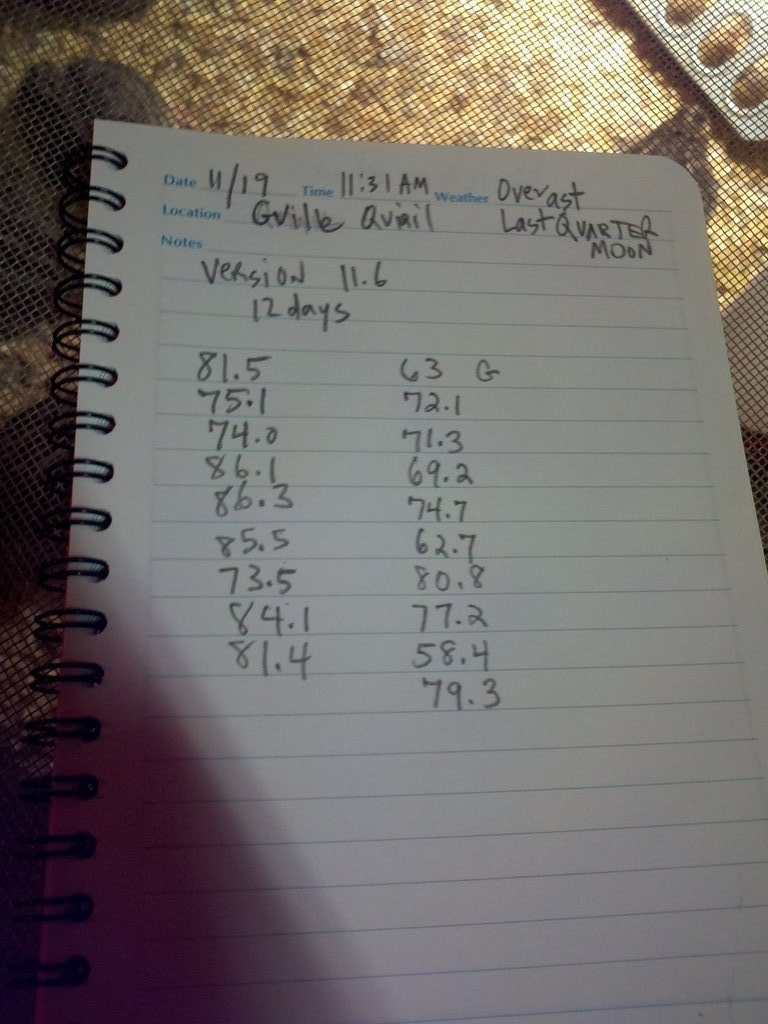 Date 11/19 Time 11:31 AM Weather Overast
Location Gville Quail Last QUARTER
MOON
Notes
Version 11.6
12 days
81.5 63 G
75.1 72.1
74.0 71.3
86.1 69.2
86.3 74.7
85.5 62.7
73.5 80.8
84.1 77.2
81.4 58.4
79.3